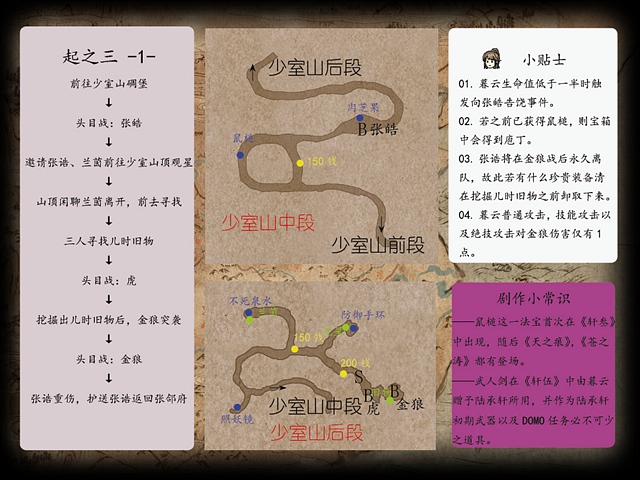 起之三 -1-
前往少室山碉堡
↓
头目战：张皓
↓
邀请张诰、兰茵前往少室山顶观星
↓
山顶闲聊兰茵离开，前去寻找
↓
三人寻找儿时旧物
↓
头目战：虎
↓
挖掘出儿时旧物后，金狼突袭
↓
头目战：金狼
↓
张诰重伤，护送张诰返回张邻府
少室山后段
肉芝果
B张皓
鼠槌
150 钱
少室山中段
少室山前段
不死泉水
防御手环
150 钱
200 钱
S
B
B
虎
金狼
照妖镜
少室山中段
少室山后段
小贴士
01. 暮云生命值低于一半时触
发向张皓告饶事件。
02. 若之前已获得鼠槌，则宝箱
中会得到庖丁。
03. 张诰将在金狼战后永久离
队，故此若有什么珍贵装备请
在挖掘儿时旧物之前卸取下来。
04. 暮云普通攻击，技能攻击以
及绝技攻击对金狼伤害仅有 1
点。
剧作小常识
——鼠槌这一法宝首次在《轩叁》
中出现，随后《天之痕》，《苍之
涛》都有登场。
——武人剑在《轩伍》中由暮云
赠予陆承轩所用，并作为陆承轩
初期武器以及 DOMO 任务必不可少
之道具。